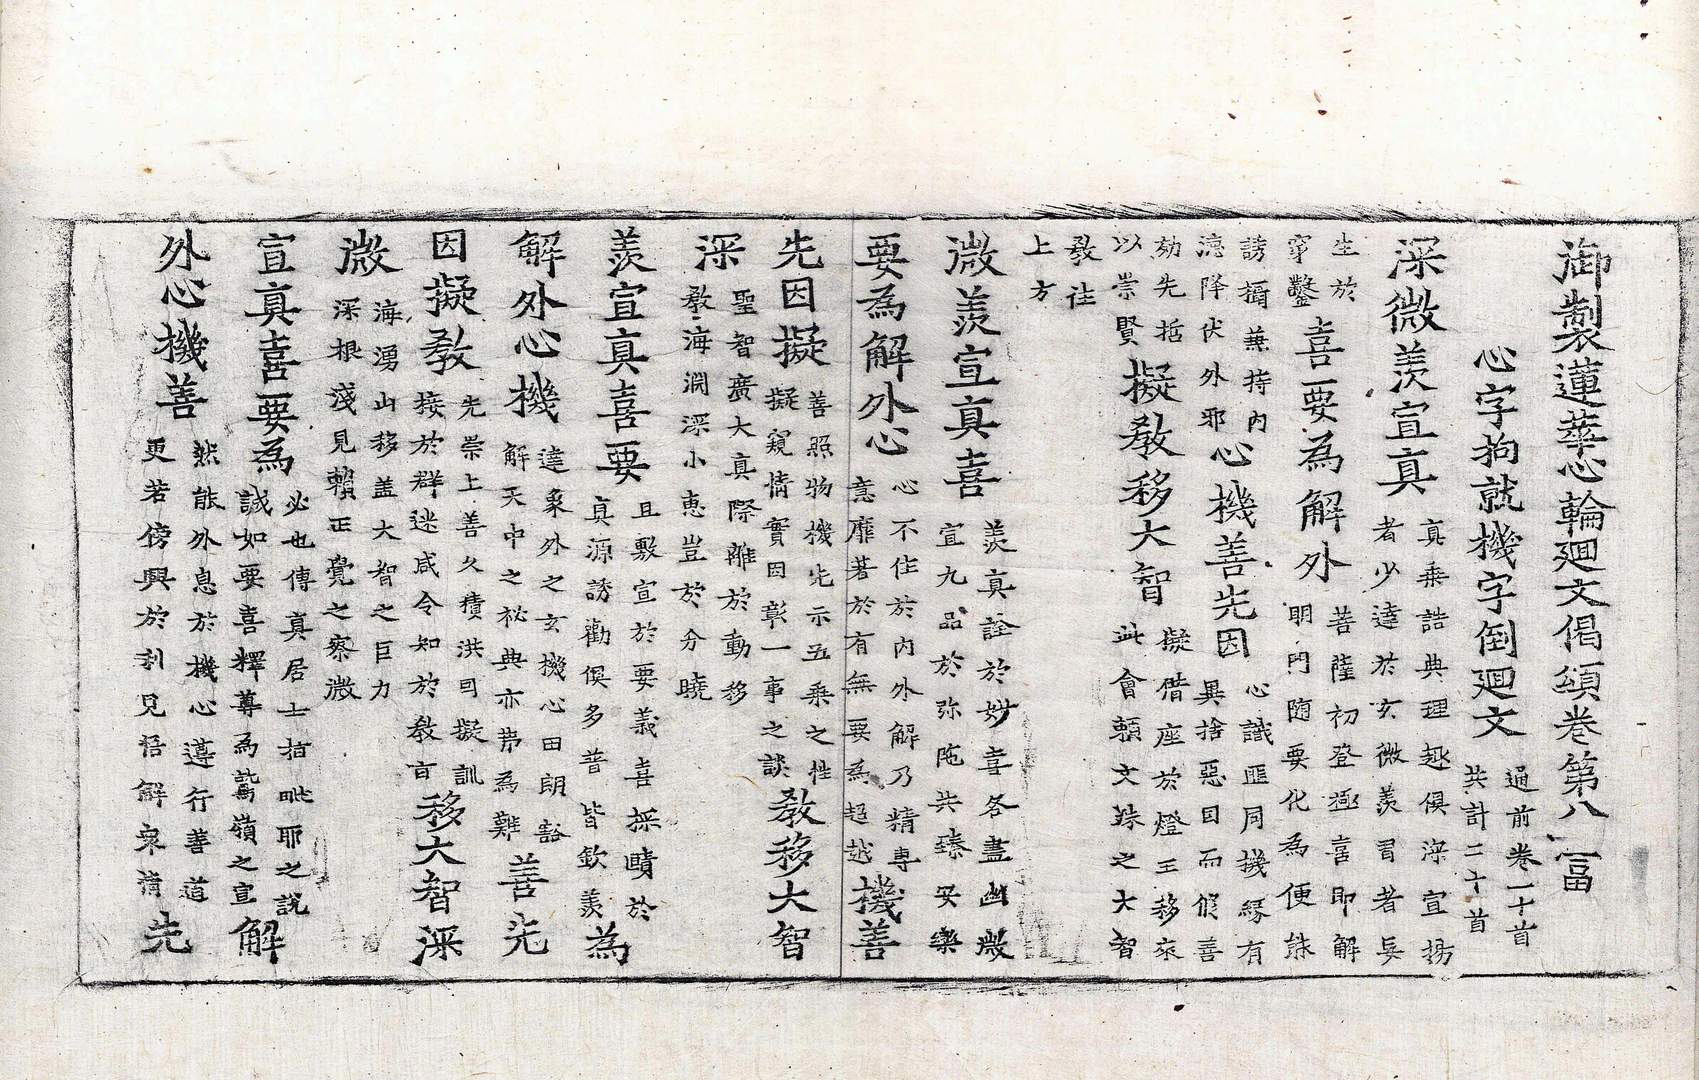 御製蓮華心輪廻文偈頌卷第八 富
心字拘就機字倒廻文
通前卷一十首
共計二十首
深微羨宣真
真乘誥典理趣俱深宣揚
者少達於玄微羨冒者
生於
穿鑿
喜要為解外
菩薩初登極喜即解
明門隨要化為便誅
誘攝兼持內
降伏外邪
心機善先因
心識匪同機緣有
異捨惡因而修善
劫先括
以崇賢
擬教移大智
擬借座於燈王移來
此會類文殊之大智
教往
上方
微羨宣真喜
羨真詮於妙喜各盡幽微
宣九品於弥陁共臻安樂
要為解外心
心不住於內外解乃精專
意靡著於有無要為超越
機善
先因擬
善照物機先示五乘之性
擬窺情實因彰一事之談
教移大智
深
聖智廣大真際離於動移
教海淵深小惠豈於分曉
羨宣真喜要
且敷宣於要義喜採賾於
真源誘勸俱多普皆欽羨
為
解外心機
達象外之玄機心田朗豁
解天中之祕典亦為難
善先
因擬教
先崇上善久積洪因擬訓
接於群迷咸令知於教旨
移大智深
微
海湧山移盖大智之巨力
深根淺見賴正覺之察微
宣真喜要為
必也傳真居士指毗耶之說
誠如要喜釋尊為鷲嶺之宣
解
外心機善
然能外息於機心遵行善道
更若傍興於利見悟解衆情
先